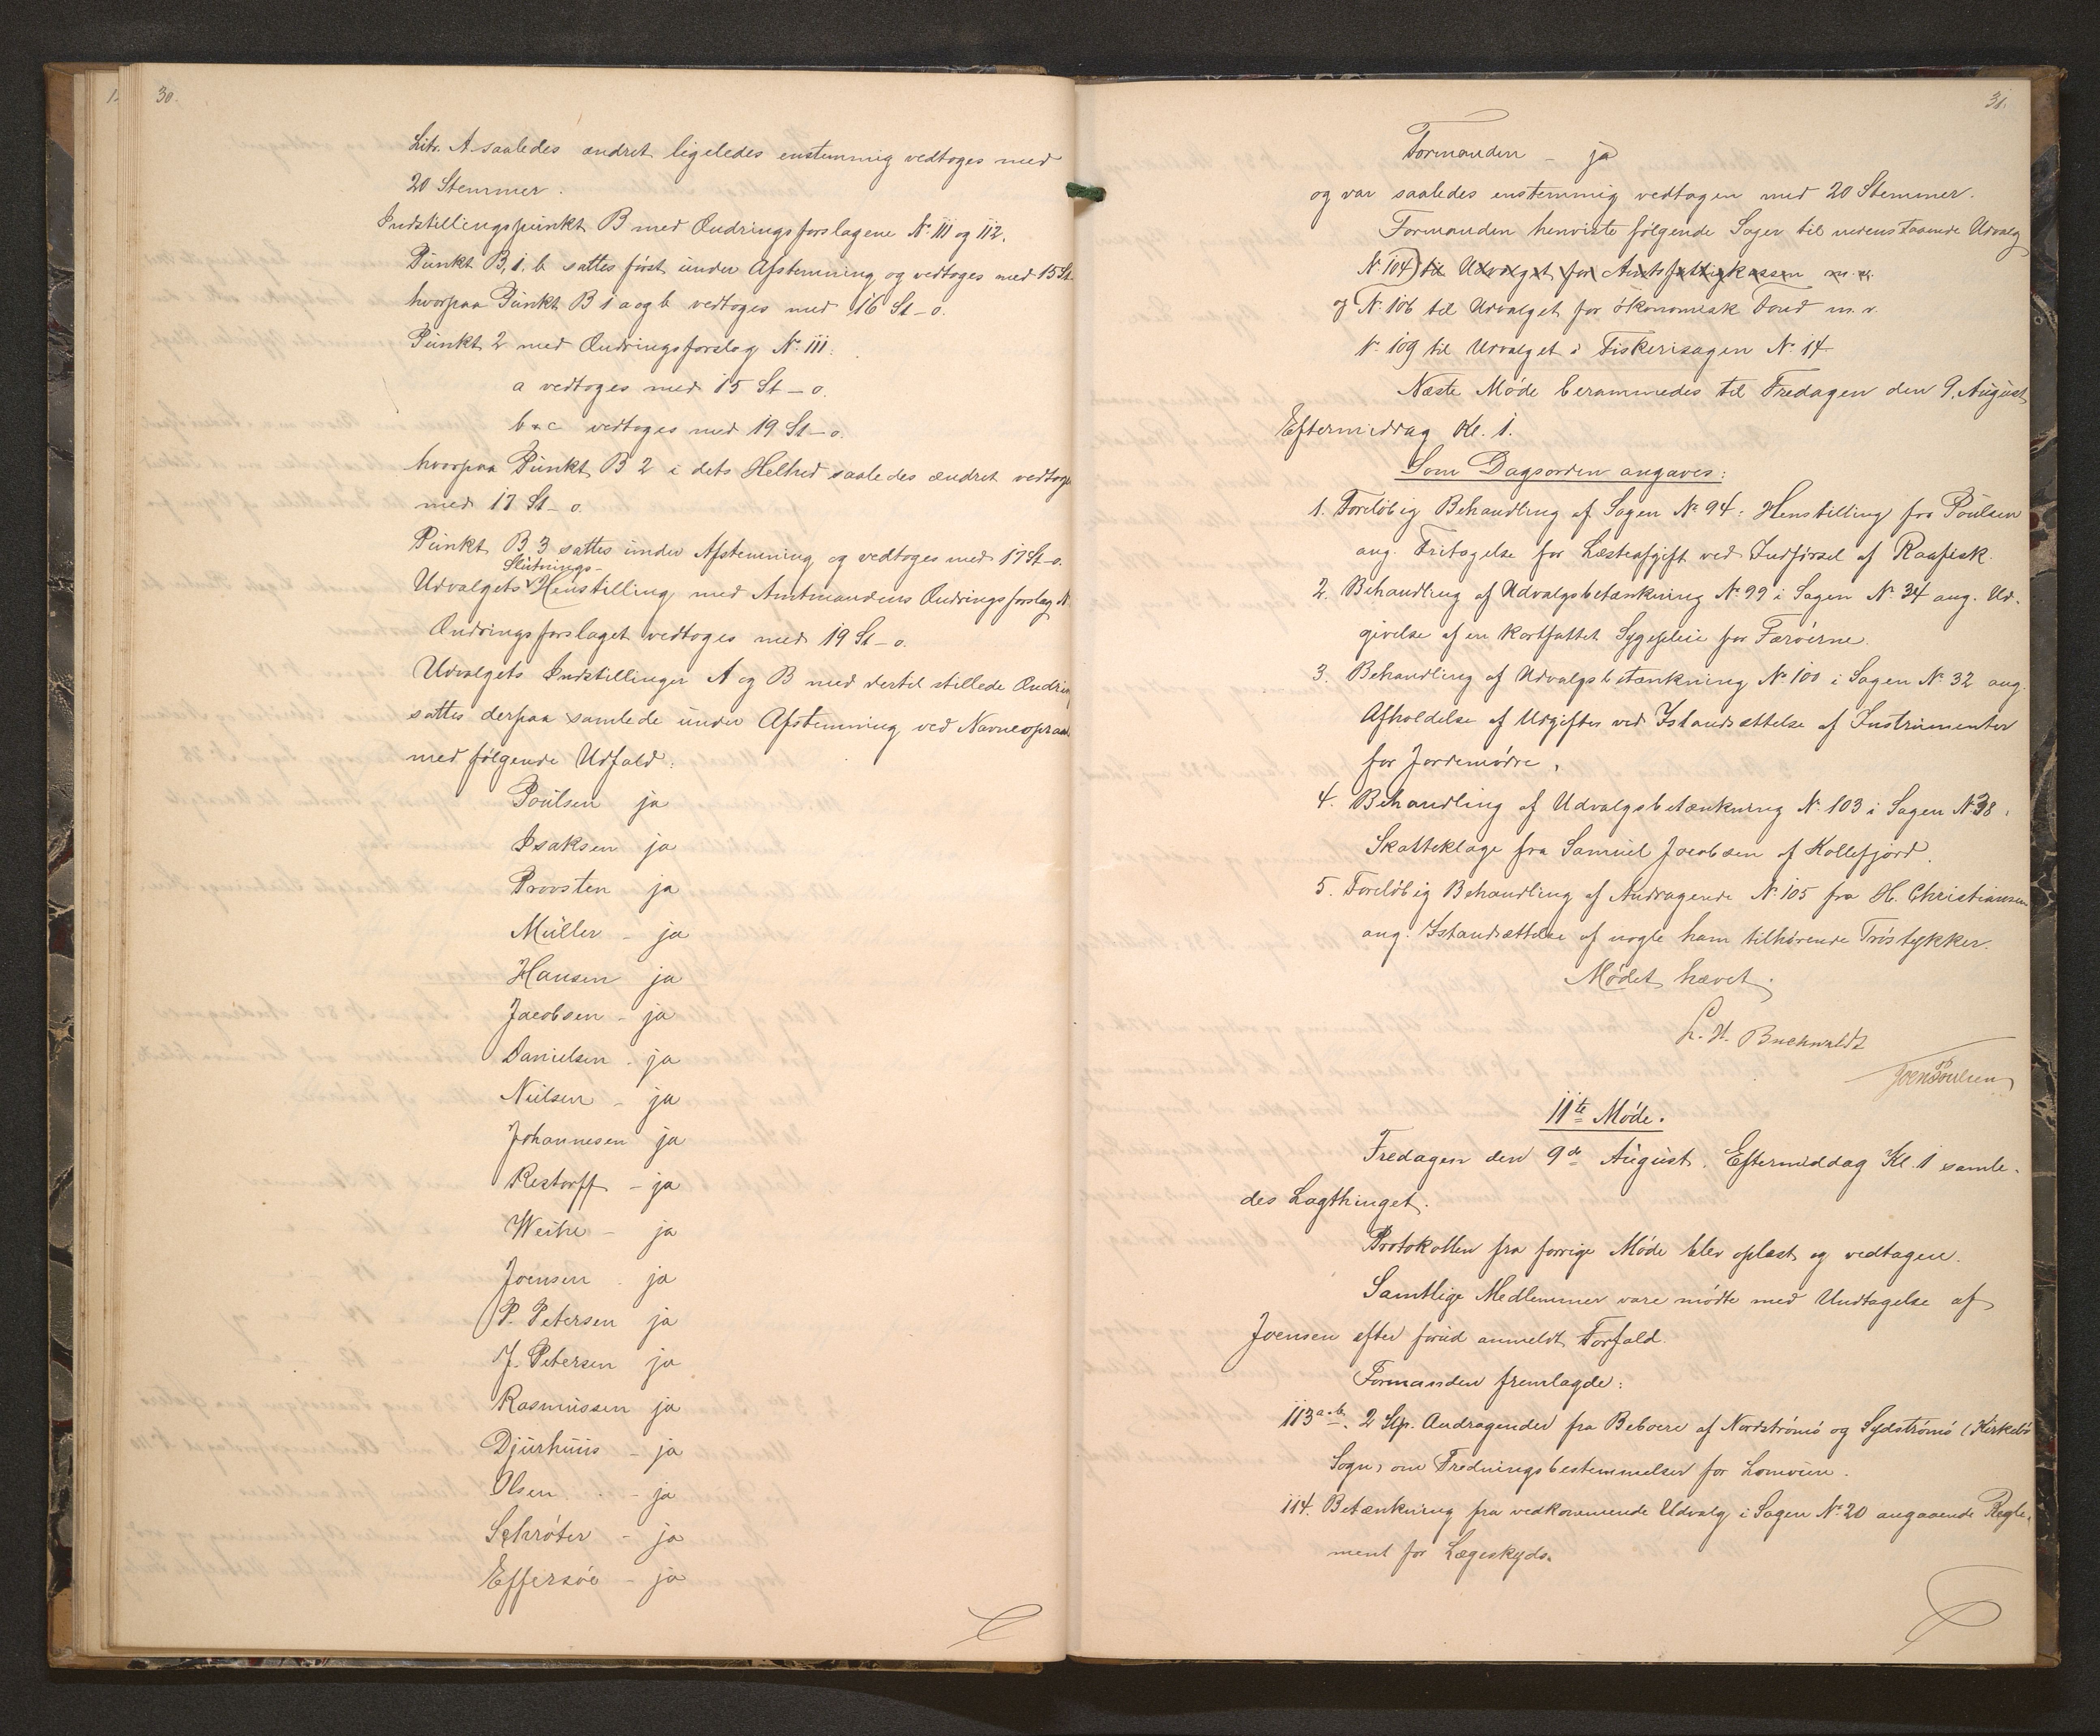 30.
Litr. A saaledes ændret ligeledes enstemmig vedtoges med
20 Stemmer.
Indstillingspunkt B med Ændringsforslagene No 111 og 112.
Punkt B, 1, b sattes først under Afstemning og vedtoges med 15 St.
hvorpaa Punkt B 1 a og b vedtoges med 16 St - 0.
Punkt 2 med Ændringsforslag No 111:
a vedtoges med 15 St - 0.
b & c vedtoges med 19 St - 0.
hvorpaa Punkt B 2 i dets Helhed saaledes ændret vedtoges
med 17 St - 0.
Punkt B 3 sattes under Afstemning og vedtoges med 17 St - 0.
Slutnings-
Udvalgets Henstilling med Amtmandens Ændringsforslag N
Ændringsforslaget vedtoges med 19 St - 0.
Udvalgets Indstillinger A og B med dertil stillede Ændrin
sattes derpaa samlede under Afstemning ved Navneopraab
med følgende Udfald:
Poulsen ja
Isaksen ja
Provsten ja
Müller - ja
Hansen ja
Jacobsen - ja
Danielsen - ja
Nielsen - ja
Johannesen ja
Restorff - ja
Weihe - ja
Joensen - ja
P. Petersen ja
J. Petersen ja
Rasmussen ja
Djurhuus - ja
Olsen - ja
Schrøter - ja
Effersøe - ja
31.
Formanden - ja
og var saaledes enstemmig vedtagen med 20 Stemmer.
Formanden henviste følgende Sager til nedenstaaende Udvalg
No 104) til Udvalget for Amtsfattigkassen m. v.
og No 106 til Udvalget for økonomisk Fond m. v.
No 109 til Udvalget i Fiskerisagen No 14
Næste Møde berammedes til Fredagen den 9. August
Eftermiddag Kl. 1.
Som Dagsorden angaves:
1. Foreløbig Behandling af Sagen No 94: Henstilling fra Poulsen
ang. Fritagelse for Læsteafgift ved Indførsel af Raafisk.
2. Behandling af Udvalgsbetænkning No 99 i Sagen No 34 ang. Ud-
givelse af en kortfattet Sygepleie for Færøerne.
3. Behandling af Udvalgsbetænkning No 100 i Sagen No 32 ang.
Afholdelse af Udgifter ved Istandsættelse af Instrumenter
for Jordemødre,
4. Behandling af Udvalgsbetænkning No 103 i Sagen No 38,
Skatteklage fra Samuel Jacobsen af Kollefjord.
5. Foreløbig Behandling af Andragende No 105 fra H. Christiansen
ang. Istandsættelse af nogle ham tilhørende Træstykker.
Mødet hævet.
L. H. Buchwaldt
Joen Poulsen
11te Møde.
Fredagen den 9de August. Eftermiddag Kl. 1 samle-
des Lagthinget.
Protokollen fra forrige Møde blev oplæst og vedtagen.
Samtlige Medlemmer vare mødte med Undtagelse af
Joensen efter forud anmeldt Forfald.
Formanden fremlagde:
113 a-b. 2 Stp. Andragender fra Beboere af Nordstrømø og Sydstrømø (Kirkebø
Sogn) om Fredningsbestemmelser for Lomvien.
114. Betænkning fra vedkommende Udvalg i Sagen No 20 angaaende Regle-
ment for Lægeskyds.